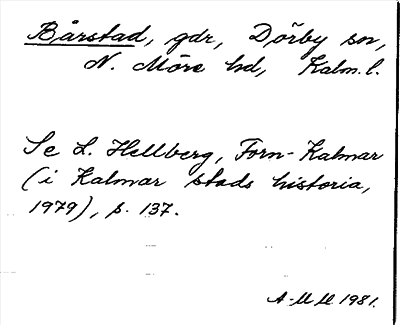 Bårstad, gdr, Dörby sn,
N. Möre hd, Kalm. l.
Se L. Hellberg, Forn-Kalmar
(i Kalmar stads historia,
1979), s. 137.
A-M M. 1981.